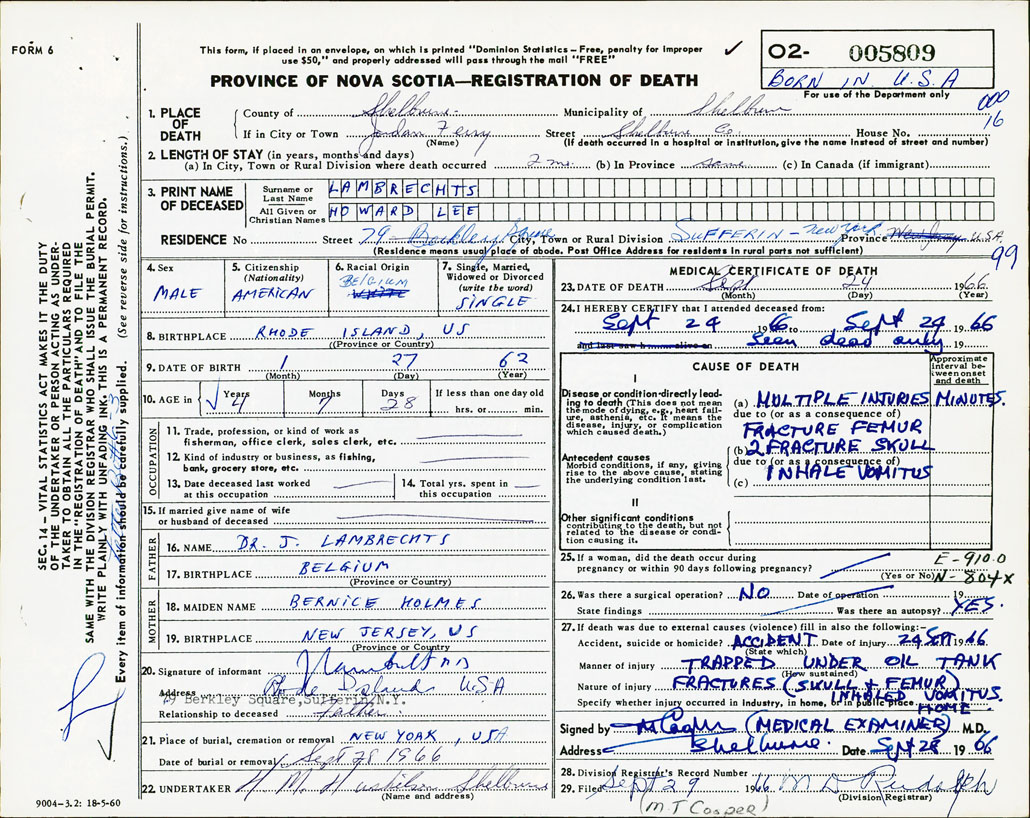 FORM 6
This form, if placed in an envelope, on which is printed "Dominion Statistics – Free, penalty for improper
use $50," and properly addressed will pass through the mail "FREE"
✓
O2- 005809
BORN IN U.S.A
For use of the Department only
PROVINCE OF NOVA SCOTIA—REGISTRATION OF DEATH
000
16
1. PLACE OF DEATH
County of Shelburne Municipality of Shelburne
If in City or Town Jordan Ferry Street Shelburne Co. House No.
(Name) (If death occurred in a hospital or institution, give the name instead of street and number)
2. LENGTH OF STAY (in years, months and days)
(a) In City, Town or Rural Division where death occurred 2 mo. (b) In Province same (c) In Canada (if immigrant)
3. PRINT NAME OF DECEASED
Surname or Last Name LAMBRECHTS
All Given or Christian Names HOWARD LEE
RESIDENCE No Street 79 Berkley Square City, Town or Rural Division SUFFERIN - New York Province New Jersey U.S.A.
(Residence means usual place of abode. Post Office Address for residents in rural parts not sufficient)
99
4. Sex
MALE
5. Citizenship
(Nationality)
AMERICAN
6. Racial Origin
BELGIUM
WHITE
7. Single, Married,
Widowed or Divorced
(write the word)
SINGLE
8. BIRTHPLACE RHODE ISLAND, US
(Province or Country)
9. DATE OF BIRTH 1 27 62
(Month) (Day) (Year)
10. AGE in ✓ Years Months Days If less than one day old
4 7 28 hrs. or min.
OCCUPATION
11. Trade, profession, or kind of work as
fisherman, office clerk, sales clerk, etc.
12. Kind of industry or business, as fishing,
bank, grocery store, etc.
13. Date deceased last worked
at this occupation
14. Total yrs. spent in
this occupation
15. If married give name of wife
or husband of deceased
FATHER
16. NAME DR. J. LAMBRECHTS
17. BIRTHPLACE BELGIUM
(Province or Country)
MOTHER
18. MAIDEN NAME BERNICE HOLMES
19. BIRTHPLACE NEW JERSEY, US
(Province or Country)
20. Signature of informant
Address Rhode Island USA
79 Berkley Square, Sufferin, N.Y.
Relationship to deceased Father.
21. Place of burial, cremation or removal NEW YORK, USA
Date of burial or removal Sept 28 1966
22. UNDERTAKER Shelburne
(Name and address)
MEDICAL CERTIFICATE OF DEATH
23. DATE OF DEATH Sept 24 1966
(Month) (Day) (Year)
24. I HEREBY CERTIFY that I attended deceased from:
Sept 24 1966 to Sept 24 1966
and last saw h alive on Seen dead only 19
CAUSE OF DEATH
Approximate interval between onset and death
I
Disease or condition directly leading to death (This does not mean the mode of dying, e.g., heart failure, asthenia, etc. It means the disease, injury, or complication which caused death.)
(a) MULTIPLE INTURIES MINUTES.
due to (or as a consequence of)
FRACTURE FEMUR
(b) 2 FRACTURE SKULL
due to (or as a consequence of)
INHALE VOMITUS
(c)
Antecedent causes
Morbid conditions, if any, giving rise to the above cause, stating the underlying condition last.
II
Other significant conditions
contributing to the death, but not related to the disease or condition causing it.
25. If a woman, did the death occur during
pregnancy or within 90 days following pregnancy?
(Yes or No)
E-910.0
N-804x
26. Was there a surgical operation? NO Date of operation 19
State findings Was there an autopsy? YES.
27. If death was due to external causes (violence) fill in also the following:–
Accident, suicide or homicide? ACCIDENT Date of injury 24 SEPT 1966
(State which)
Manner of injury TRAPPED UNDER OIL TANK
(How sustained)
Nature of injury FRACTURES (SKULL + FEMUR)
INHALED VOMITUS.
Specify whether injury occurred in industry, in home, or in public place HOME.
Signed by (MEDICAL EXAMINER) M.D.
Address Shelburne. Date Sept 28 1966
28. Division Registrar's Record Number
29. Filed Sept 29 1966 M D Rudolph
(Division Registrar)
(M.T Cosper)
SEC. 14 – VITAL STATISTICS ACT MAKES IT THE DUTY
OF THE UNDERTAKER OR PERSON ACTING AS UNDER-
TAKER TO OBTAIN ALL THE PARTICULARS REQUIRED
IN THE "REGISTRATION OF DEATH" AND TO FILE THE
SAME WITH THE DIVISION REGISTRAR WHO SHALL ISSUE THE BURIAL PERMIT.
WRITE PLAINLY WITH UNFADING INK. THIS IS A PERMANENT RECORD.
Every item of information should be carefully supplied. (See reverse side for instructions.)
9004–3.2: 18-5-60